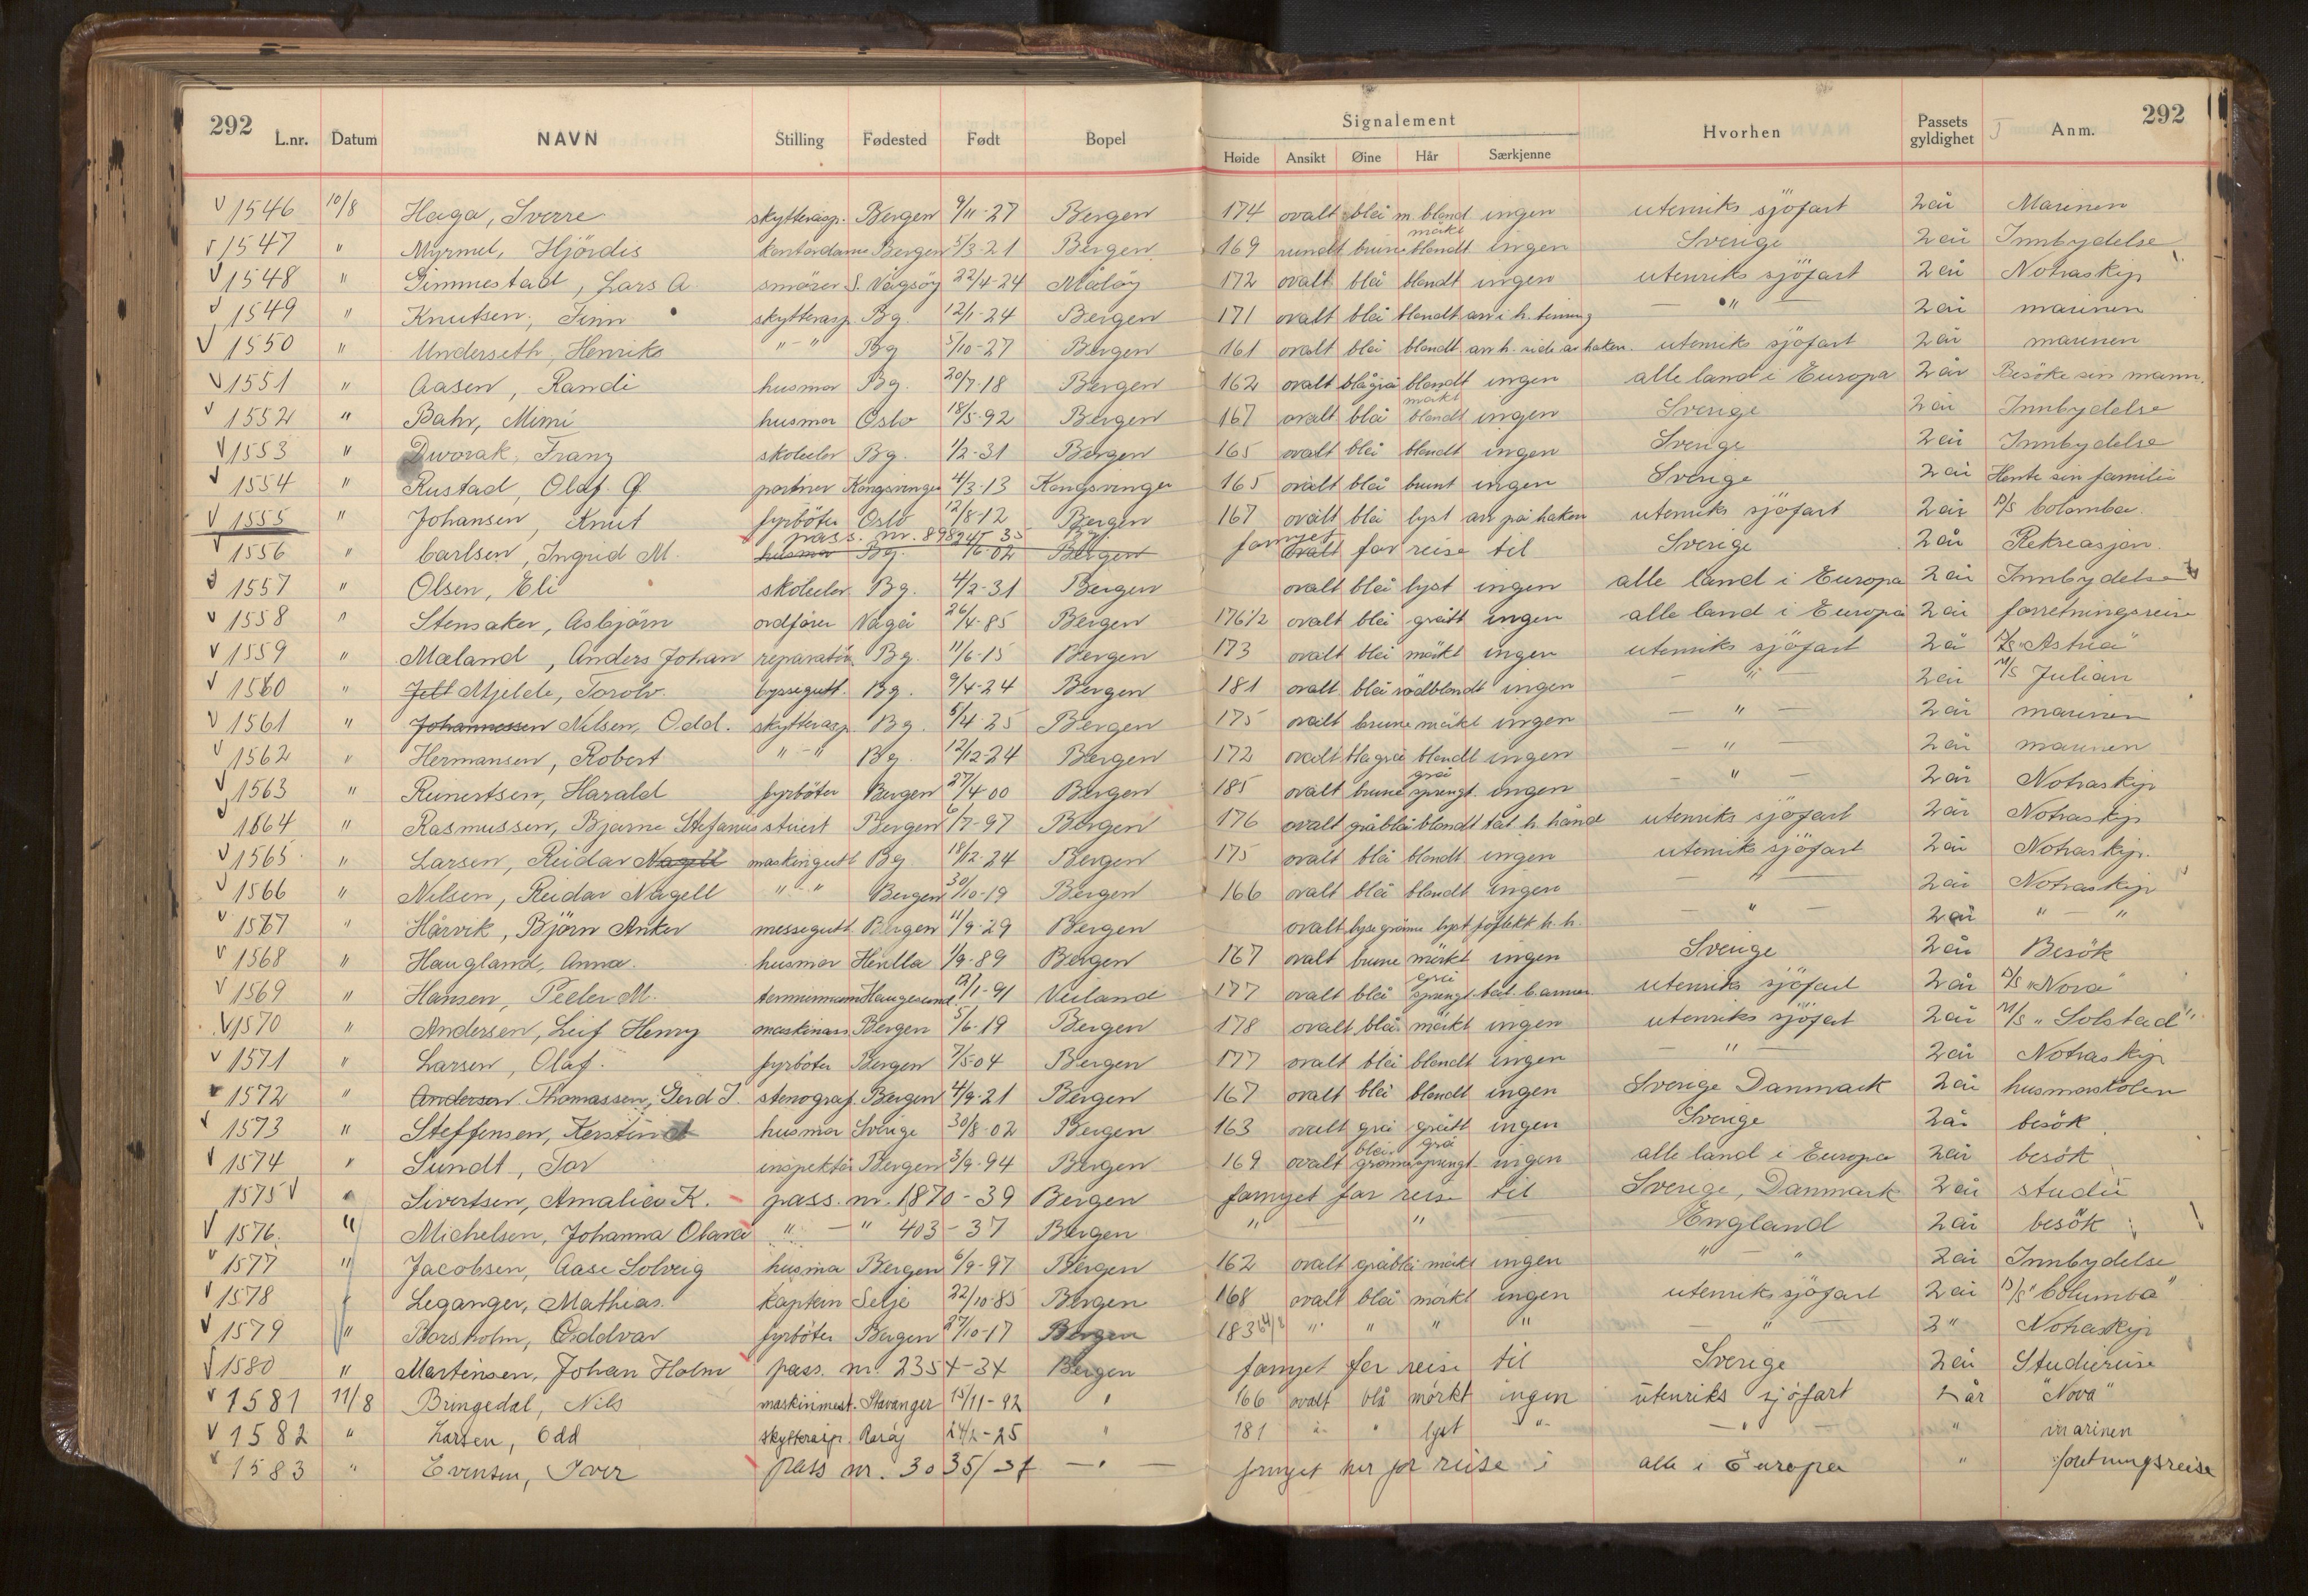 292 Signalement 292
L.nr. Datum NAVN Stilling Fødested Født Bopel Høide Ansikt Øine Hår Særkjenne Hvorhen Passets gyldighet Anm.
V 1546 10/8 Haga, Sverre skytterasp. Bergen 9/11-27 Bergen 174 ovalt blå m. blond ingen utenriks sjöfart 2 år Marinen
V 1547 " Myrmel, Hjördis kontordame Bergen 5/3-21 Bergen 169 rundt brune mörkt blondt ingen Sverige 2 år Innbydelse
V 1548 " Gimmestad, Lars A. smörer S. Vågsöy 22/4-24 Målöy 172 ovalt blå blondt ingen utenriks sjöfart 2 år Notraskip
V 1549 " Knutsen, Finn skytterasp. Bg. 12/1-24 Bergen 171 ovalt blå blondt arr i h. tinning — " — 2 år marinen
V 1550 " Underseth, Henriks " - " Bg 5/10-27 Bergen 161 ovalt blå blondt arr h. side av haken. utenriks sjöfart 2 år marinen
V 1551 " Aasen, Randi husmor Bg. 20/7-18 Bergen 162 ovalt blågrå blondt ingen alle land i Europa 2 år Besöke sin mann.
V 1552 " Bahr, Mimi husmor Oslo 18/5-92 Bergen 167 ovalt blå mörkt blondt ingen Sverige 2 år Innbydelse
V 1553 " Dworak, Franz skoleelev Bg. 1/2-31 Bergen 165 ovalt blå blondt ingen Sverige 2 år Innbydelse
V 1554 " Rustad, Olaf G. portner Kongsvinger 4/3-13 Kongsvinger 165 ovalt blå brunt ingen Sverige 2 år Hente sin familie
V 1555 " Johansen, Knut fyrböter Oslo 12/8-12 Bergen 167 ovalt blå lyst arr på haken utenriks sjöfart 2 år D/S Colomba.
pass. nr.
V 1556 " Carlsen, Ingrid M. husmor Bg. /6-02 Bergen fornyet ovalt for reise til Sverige 2 år Rekreasjon.
V 1557 " Olsen, Eli skoleelev Bg. 4/2-31 Bergen ovalt blå lyst ingen alle land i Europa 2 år Innbydelse
V 1558 " Stensaker, Asbjörn ordförer Vågå 26/4-85 Bergen 176 1/2 ovalt blå grått ingen alle land i Europa 2 år forretningsreise
V 1559 " Mæland, Anders Johan reparatör Bg. 11/6-15 Bergen 173 ovalt blå mörkt ingen utenriks sjöfart 2 å D/S "Astrea"
V 1560 " Jelt Mjelde, Torolv. byssegutt. Bg. 9/4-24 Bergen 181 ovalt blå rödblondt ingen — " — 2 år M/S Julian
V 1561 " Johannessen Nilsen, Odd. skytterasp. Bg. 5/4-25 Bergen 175 ovalt brune mörkt ingen — " — 2 år marinen
V 1562 " Hermansen, Robert " - " Bg. 12/12-24 Bergen 172 ovalt blågrå blondt ingen — " — 2 år marinen
V 1563 " Reinertsen, Harald fyrböter Bergen 27/4 00 Bergen 185 ovalt brune grå sprengt. ingen — " — 2 år Notraskip
V 1564 " Rasmussen, Bjarne Stefanus stuert Bergen 6/7-97 Bergen 176 ovalt gråblå blondt tat. h. hånd utenriks sjöfart 2 år Notraskip
V 1565 " Larsen, Reidar Nagell maskingutt Bg 18/12-24 Bergen 175 ovalt blå blondt ingen utenriks sjöfart 2 år Notraskip.
V 1566 " Nilsen, Reidar Nagell " - " Bergen 30/10-19 Bergen 166 ovalt blå blondt ingen — " — 2 år Notraskip
V 1567 " Hårvik, Björn Anker messegutt Bergen 11/9-29 Bergen ovalt lysegrönne lyst föflekk h. h. — " — 2 år " — "
V 1568 " Haugland, Anna. husmor Herdla 1/9-89 Bergen 167 ovalt brune mörkt ingen Sverige 2 år Besök
V 1569 " Hansen, Peder M. tømmermann Haugesund 12/1-91 Veiland 177 ovalt blå grå sprengt tat. b. armer. utenriks sjöfart 2 år D/S "Nova"
V 1570 " Andersen, Leif Henry maskinass. Bergen 5/6-19 Bergen 178 ovalt blå mörkt ingen utenriks sjöfart 2 år M/S "Solstad"
V 1571 " Larsen, Olaf. fyrböter Bergen 7/5-04 Bergen 177 ovalt blå blondt ingen — " — 2 år Notraskip
1572 " Anderson Thomassen, Gerd J. stenograf. Bergen 4/9-21 Bergen 167 ovalt blå blondt ingen Sverige Danmark 2 år husmorskolen
V 1573 " Steffensen, Kerstin husmor Sverige 30/8-02 Bergen 163 ovalt grå grått ingen Sverige 2 år besök
V 1574 " Sundt, Tor inspektör Bergen 3/9-94 Bergen 169 ovalt blå grönne grå sprengt ingen alle land i Europa 2 år besök
1575 V " Sivertsen, Amalie K. pass. nr. 1870-39 Bergen fornyet for reise til Sverige, Danmark 2 år studie
V 1576. " Michelsen, Johanna Olava " — " 403-37 Bergen " — " — England 2 år besök
V 1577 " Jacobsen, Aase Solveig husmor Bergen 6/9-97 Bergen 162 ovalt gråblå mörkt ingen " — " 2 år Innbydelse
V 1578 Leganger, Mathias. kaptein Selje 22/10-85 Bergen 168 ovalt blå mörkt ingen utenriks sjöfart 2 år D/S "Columba"
V 1579 " Borsholm, Oddvar fyrböter Bergen 27/10-17 Bergen 183 " " " " — " — 2 " Notraskip
V 1580 " Martinsen, Johan Holm pass. nr. 2354-34 Bergen fornyet for reise til Sverige 2 år Studiereise
V 1581 11/8 Bringedal, Nils maskinmest. Stavanger 15/11-92 " 166 ovalt blå mörkt ingen utenriks sjöfart 2 år "Nova"
V 1582 " Larsen, Odd skytterasp. 24/2-25 " 181 " " lyst " — " — " marinen
V 1583 " Evensen, Iver pass nr. 3035/37 — " — fornyet her for reise i alle i Europa " forretningsreise